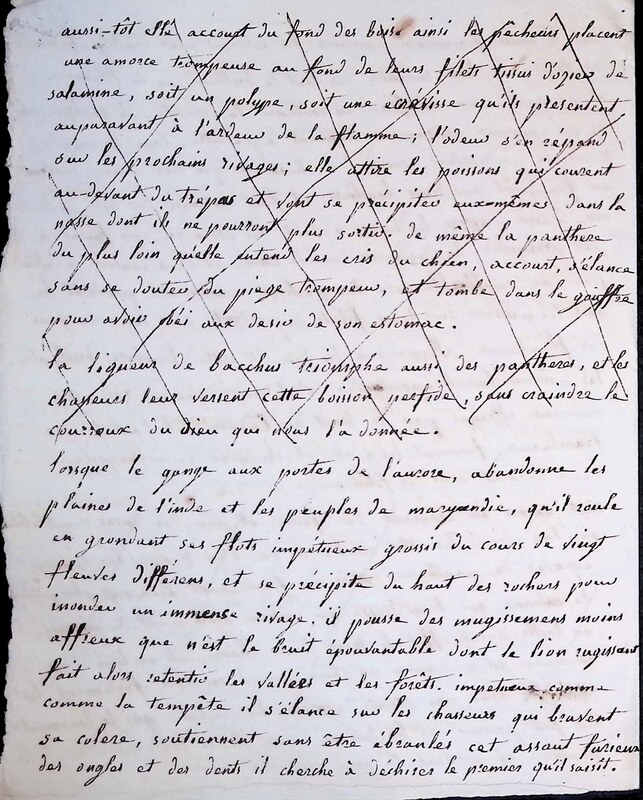 aussi-tôt elle accourt du fond des bois. ainsi les pêcheurs placent
une amorce trompeuse au fond de leurs filets tissus d'ozier de
salamine, soit un polype, soit une écrevisse qu'ils présentent
auparavant à l'ardeur de la flamme; l'odeur s'en répand
sur les prochains rivages; elle attire les poissons qui courent
au-devant du trépas et vont se précipiter eux-mêmes dans la
nasse dont ils ne pourront plus sortir. de même la panthere
du plus loin qu'elle entend les cris du chien, accourt, s'élance
sans se douter du piege trompeur, et tombe dans le gouffre
pour avoir obéi aux desir de son estomac.
la liqueur de bacchus triomphe aussi des pantheres, et les
chasseurs leur versent cette boisson perfide, sans craindre le
courroux du dieu qui nous l'a donnée.
lorsque le gange aux portes de l'aurore, abandonne les
plaines de l'inde et les peuples de maryandie, qu'il roule
en grondant ses flots impétueux grossis du cours de vingt
fleuves différens, et se précipite du haut des rochers pour
inonder un immense rivage. il pousse des mugissemens moins
affreux que n'est le bruit épouvantable dont le lion rugissant
fait alors retentir les vallées et les forêts. impetueux comme
comme la tempête il s'élance sur les chasseurs qui bravent
sa colere, soutiennent sans être ébranlés cet assaut furieux
des ongles et des dents il cherche à déchirer le premier qu'il saisit.